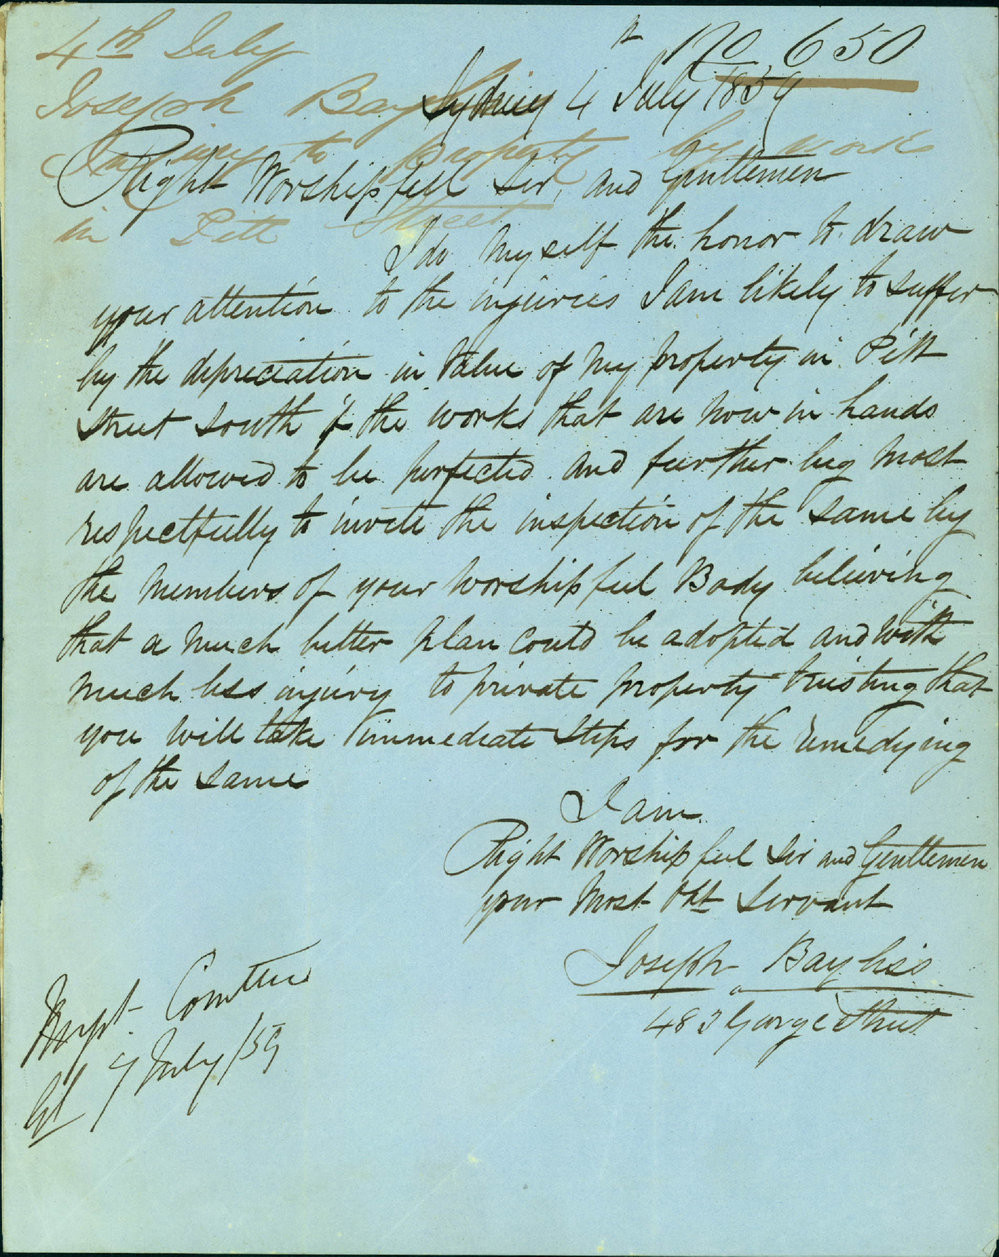 4th July
No 650
Joseph Bayliss
Injury to Property by works
in Pitt Street
Sydney 4 July 1859
Right Worshipfull Sir, and Gentlemen
I do myself the honor to draw
your attention to the injuries I am likely to suffer
by the depreciation in value of my property in Pitt
Street South if the works that are now in hands
are allowed to be perfected and further beg most
respectfully to invite the inspection of the same by
the members of your worshipful Body believing
that a much better plan could be adopted and with
much less injury to private property trusting that
you will take immediate steps for the remedying
of the same
I am
Right Worshipful Sir and Gentlemen
your Most Obt Servant
Joseph Bayliss
483 George Street
Impt. Comttee
7 July /59